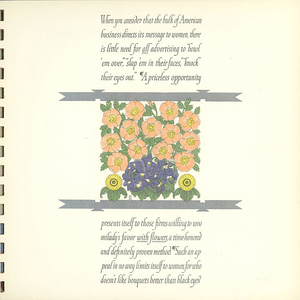 When you consider that the bulk of American
business directs its message to women, there
is little need for all advertising to "bowl
'em over," "slap 'em in their faces," "knock
their eyes out." ¶A priceless opportunity
presents itself to those firms willing to woo
milady's favor with flowers, a time honored
and definitely proven method. ¶Such an ap
peal in no way limits itself to women, for who
doesn't like bouquets better than black eyes?